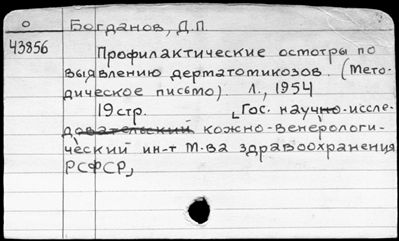 О Богданов, Д.П.
43856 Профилактические осмотры по
выявлению дерматомикозов. (Мето-
дическое письмо). Л., 1954
19 стр. Гос. научно-иссле-
довательский кожно-венерологи-
ческий ин-т М-ва здравоохранения
РСФСР,